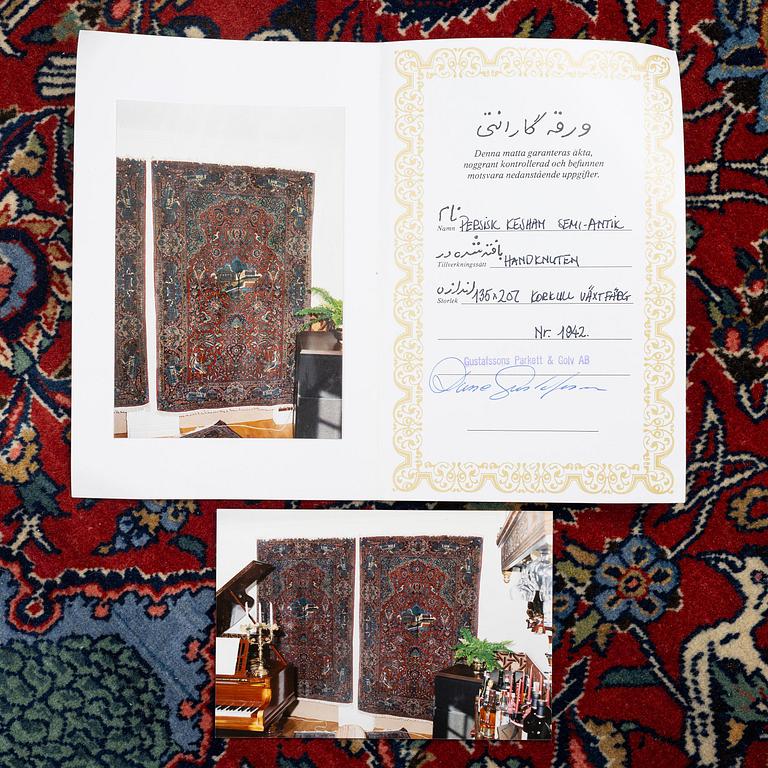 ورقه گارانتی
Denna matta garanteras äkta,
noggrant kontrollerad och befunnen
motsvara nedanstående uppgifter.
نام
Namn PERSISK KESHAM SEMI-ANTIK
بافته شده در
Tillverkningssätt HANDKNUTEN
اندازه
Storlek 135x207 KORKULL VÄXTFÄRG
Nr. 1942.
Gustafssons Parkett & Golv AB